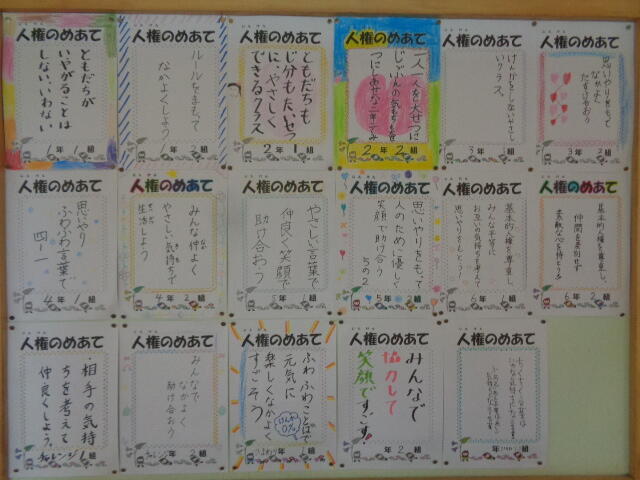 人権のめあて
ともだちが
いやがることは
しない、いわない
1年1組
人権のめあて
ルールをまもって
なかよくしよう
1年2組
人権のめあて
ともだちも
じ分もたいせつ
に、やさしく
できるクラス
2年1組
人権のめあて
一人一人を大せつに
2年2組
人権のめあて
けんかをしないやさし
いクラス。
3年1組
人権のめあて
思いやりをもって
なかよく
たすけあおう
3年2組
人権のめあて
思いやり
ふわふわ言葉で
四-一
4年1組
人権のめあて
みんな仲よく
やさしい気持ちで
生活しよう
4年2組
人権のめあて
やさしい言葉で
仲良く笑顔で
助け合おう
5年1組
人権のめあて
思いやりをもって
人のために優しく
笑顔で助け合う
5の2
5年2組
人権のめあて
基本的人権を尊重し、
みんな平等に
お互いの気持ちを考えて
思いやりをもとう!
6年1組
人権のめあて
基本的人権を尊重し、
仲間を差別せず
素敵な心を持とう
6年2組
人権のめあて
・相手の気持
ちを考えて
仲良くしよう。
チャレンジ1組
人権のめあて
みんなで
なかよく
助け合おう
チャレンジ2組
人権のめあて
ふわふわことばで
元気に
楽しくなかよく
すごそう
けんか
0%
人権のめあて
みんなで
協力して
笑顔ですごす!
年2組
人権のめあて